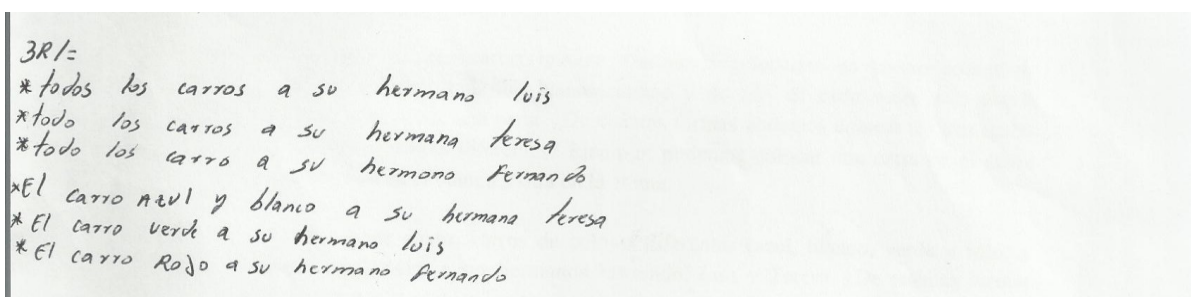 3R/=
* todos los carros a su hermano luis
* todo los carros a su hermana teresa
* todo los carro a su hermono Fernando
* El carro Azul y blanco a su hermana teresa
* El carro verde a su hermano luis
* El carro Rojo a su hermano fernando